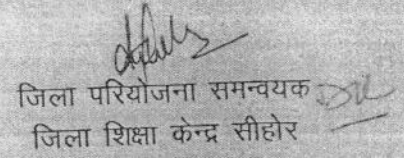 जिला परियोजना समन्वयक
जिला शिक्षा केन्द्र सीहोर